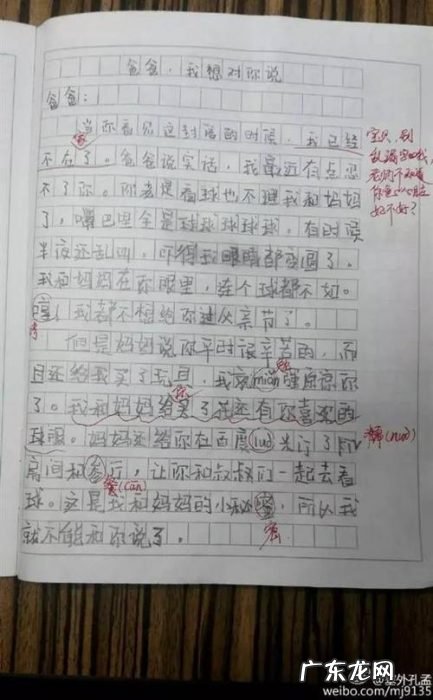 爸爸,我想对你说
爸爸:
当你看见这封信的时候,我已经
不在了。爸爸说实话,我最近有点忍
不了你。你老是看球也不理我和妈妈
了,嘴巴里全是球球球球球,有时候
半夜还乱叫,吓得我眼睛都变圆了。
我和妈妈在你眼里,连个球都不如。
哼!我都不想给你过父亲节了。
但是妈妈说你平时很辛苦的,而
且还给我买了玩具,我就mian强原谅你
了。我和妈妈给买了花还有你喜欢的
球服。妈妈还给你在百度nuo先订了
房间和参厅,让你和叔叔们一起去看
球。这是我和妈妈的小秘蜜,所以我
就不能和你说了。
宝贝,别
你
糯(nuò)
餐(cān)
密
广东龙网
weibo.com/mj9135